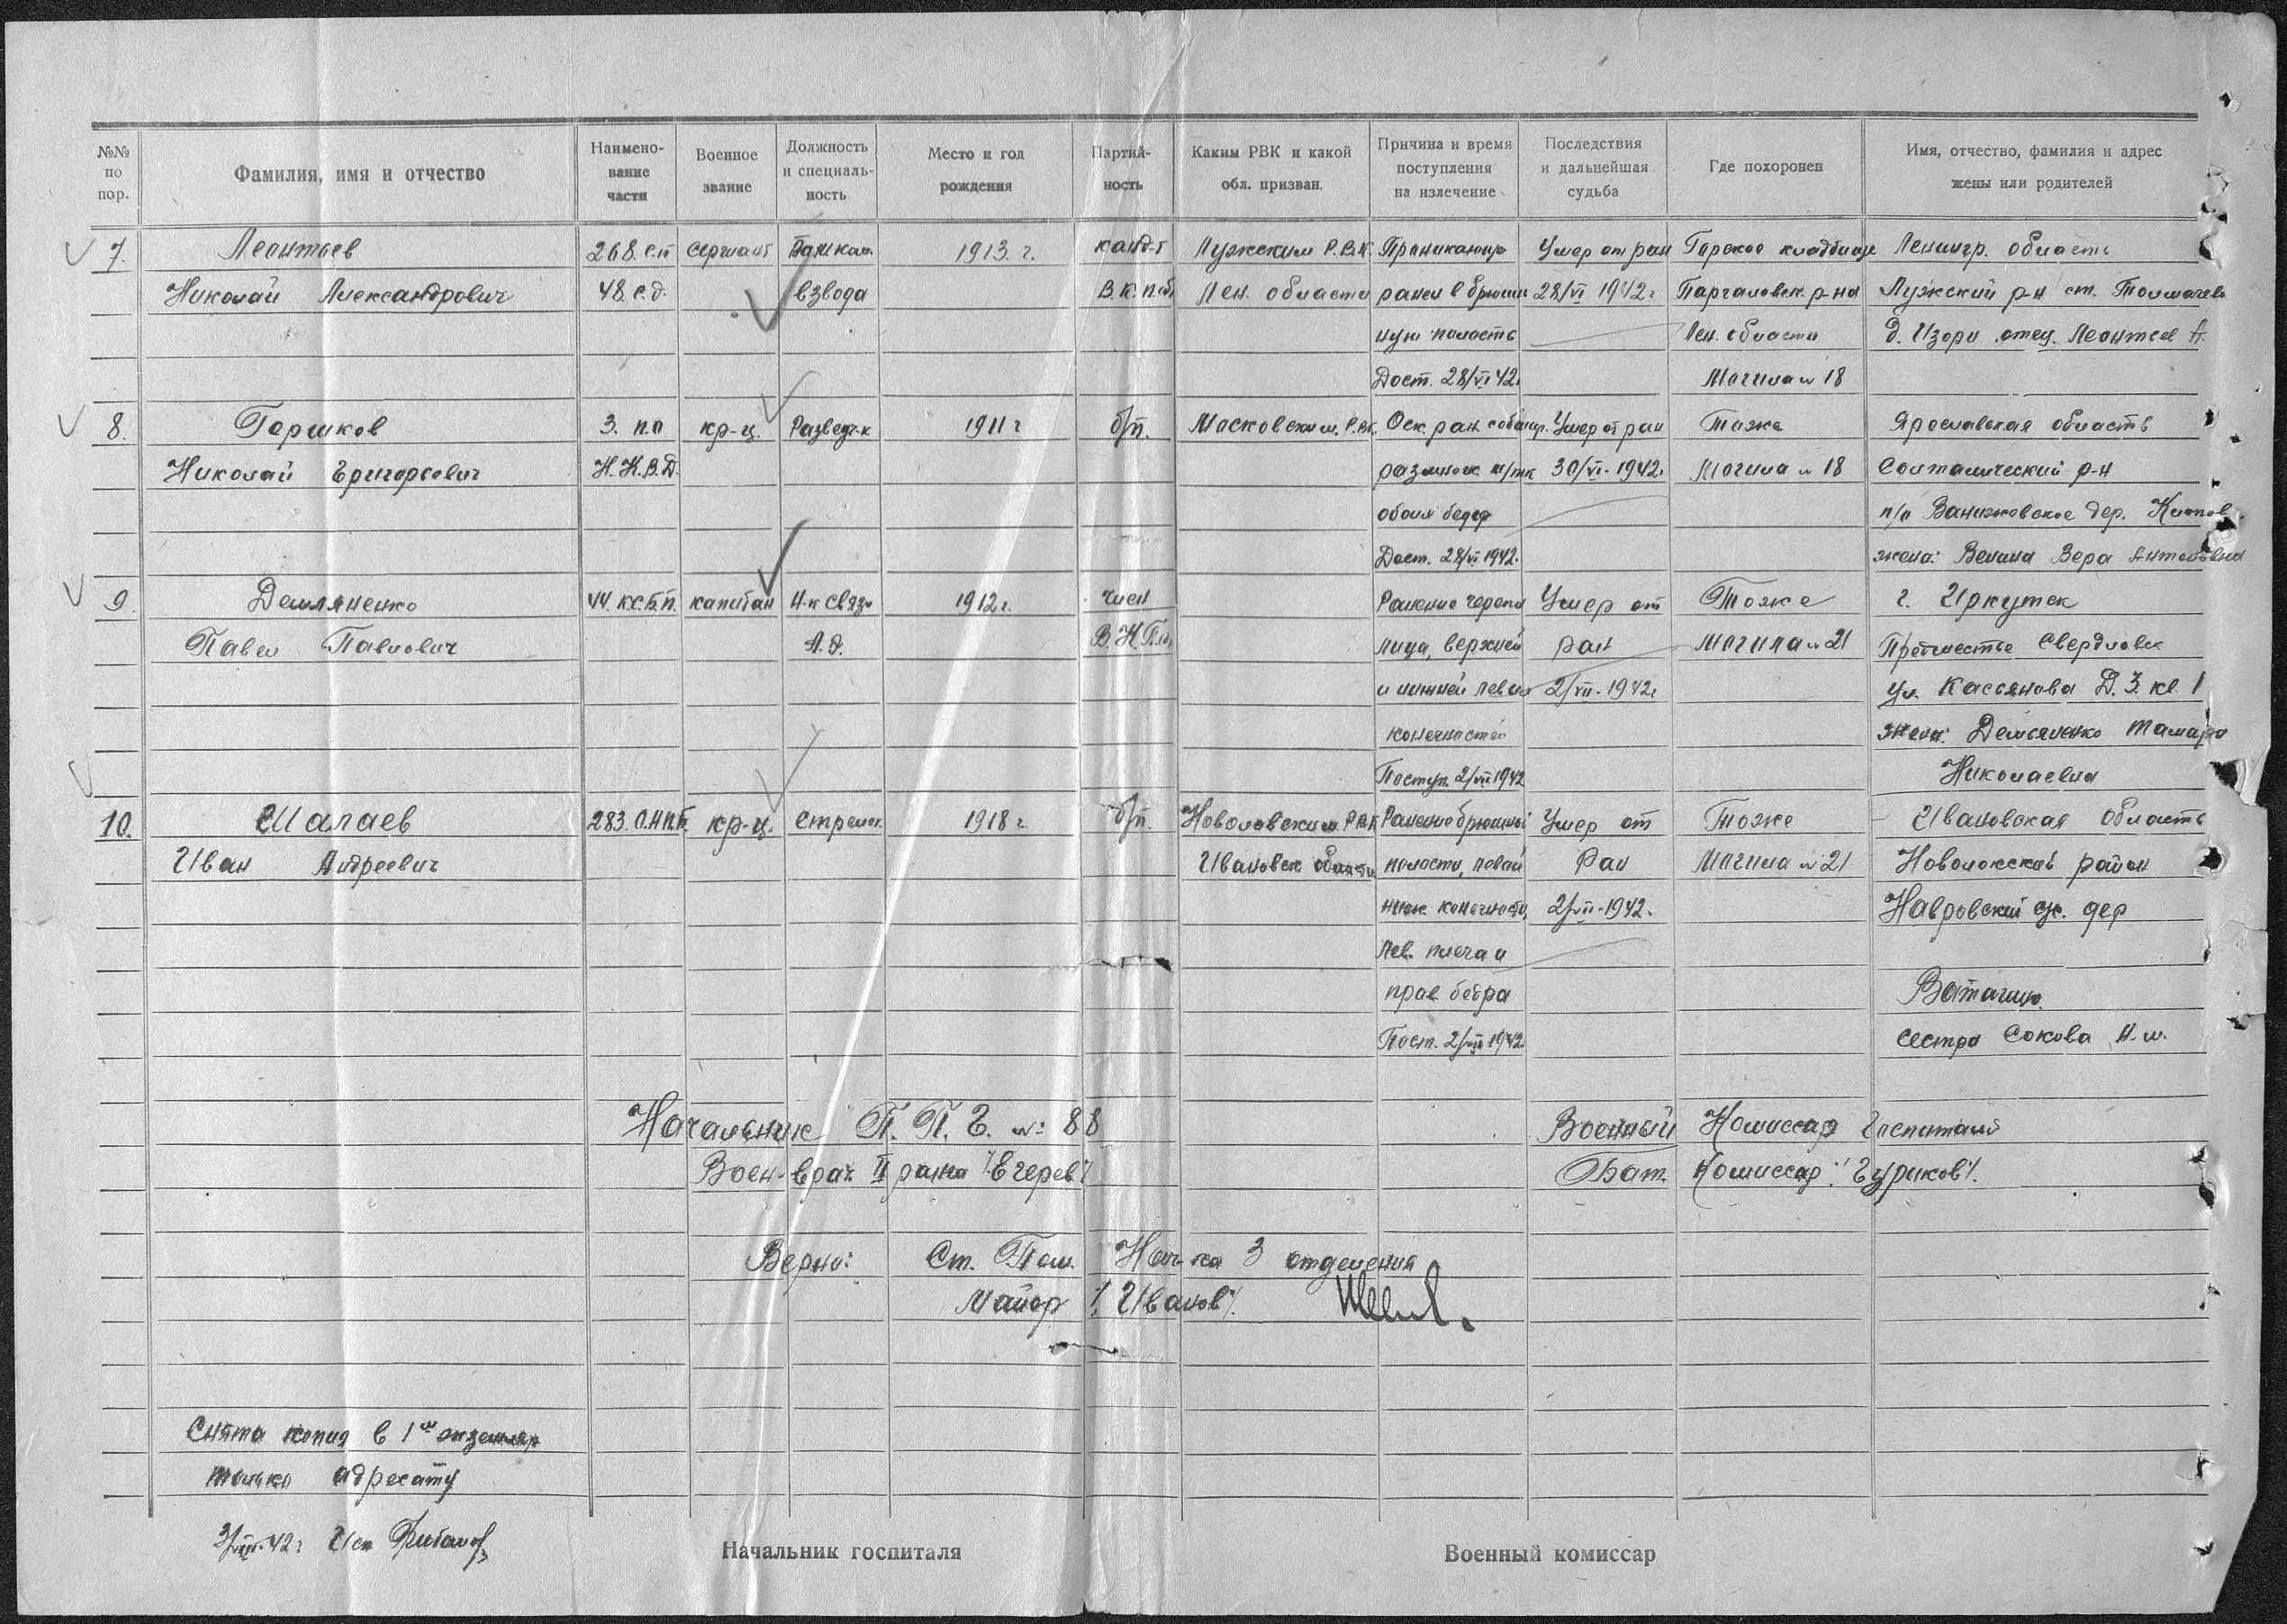 №№ по пор.
Фамилия, имя и отчество
Наимено-вание части
Военное звание
Должность и специаль-ность
Место и год рождения
Партий-ность
Каким РВК и какой обл. призван.
Причина и время поступления на излечение
Последствия и дальнейшая судьба
Где похоронен
Имя, отчество, фамилия и адрес жены или родителей
7. Леонтьев 268 с.п сержант 1913 г. канд-т Лужским Р.В.К. Проникающ Умер от ран Горское кладбище Ленингр. область
Николай Александрович 48 с.д. взвода В.К.П.(б) Лен. области ранен в брюш 28/VI 1942г Парголовск. р-на Лужский р-н ст. Толмачево
ную полость Лен. области д. Изори отец. Леонтьев А.
Дост. 28/VI 42. Могила № 18
8. Горшков 3. п.п кр-ц. Разведч-к 1911 г б/п. Московским. Р.В.К. Оск. ран. с обшир. Умер от ран Тоже Ярославская область
Николай Григорьевич Н.К.В.Д. размозж. м/тк 30/VI-1942г. Могила № 18 р-н
обоих бедер п/о дер.
Дост. 28/VI 1942. жена: Вера
9. Демляненко 44. к.с.б.п. капитан Н-к связи 1912 г. член Ранение черепа Умер от Тоже г. Иркутск
Павел Павлович А.д. лица, верхней ран Могила № 21 Предместье Свердловск
и нижней левых 2/VII-1942г ул. Касьянова Д. 3. кв. 1
конечностей жена: Демьяненко Тамара
Поступ. 2/VII 1942 Николаевна
10. Шалаев 283. кр-ц. стрелок 1918 г. б/п. Новоловским РВК Ранение брюшной Умер от Тоже Ивановская область
Иван Андреевич Ивановск области полости, левой Ран Могила № 21 район
ниж конечности, 2/VII-1942. с/с. дер
лев. плеча и
прав. бедра
Пост. 2/VII 1942 сестра Сокова А.М.
Начальник П. П. Г. № 88 Военный Комиссар Госпиталя
Воен-врач II ранга /Егерев/ Бат. Комиссар: /Гуриков/.
Верно: Ст. Пом. Нач-ка 3 отделения
Майор /Иванов/.
Снята копия в 1ом экземпляр
только адресату
3/VIII-42г Исп
Начальник госпиталя Военный комиссар